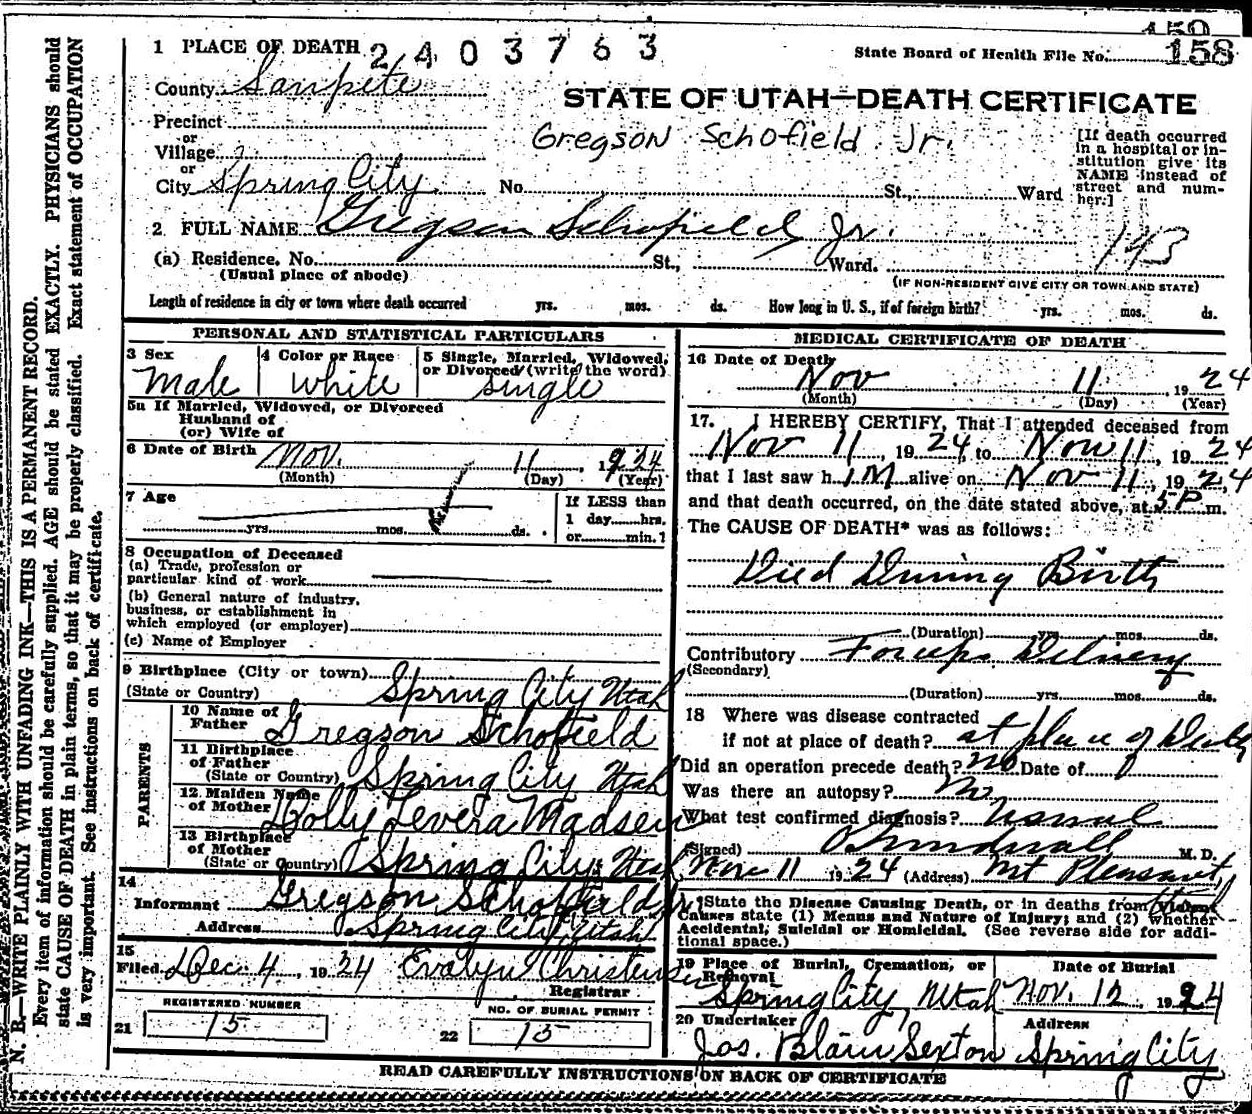 159
1 PLACE OF DEATH 2403763
State Board of Health File No. 158
County Sanpete
STATE OF UTAH—DEATH CERTIFICATE
Precinct
or
Village
or
City Spring City No. St., Ward
Gregson Schofield Jr.
[If death occurred in a hospital or institution give its NAME instead of street and number.]
2 FULL NAME Gregson Schofield Jr.
143
(a) Residence. No. St., Ward.
(Usual place of abode)
(IF NON-RESIDENT GIVE CITY OR TOWN AND STATE)
Length of residence in city or town where death occurred yrs. mos. ds. How long in U. S., if of foreign birth? yrs. mos. ds.
PERSONAL AND STATISTICAL PARTICULARS
3 Sex Male
4 Color or Race white
5 Single, Married, Widowed, or Divorced (write the word) single
5a If Married, Widowed, or Divorced
Husband of
(or) Wife of
6 Date of Birth Nov. 11, 1924
(Month) (Day) (Year)
7 Age
yrs. mos. ds.
If LESS than
1 day hrs.
or min.?
8 Occupation of Deceased
(a) Trade, profession or
particular kind of work
(b) General nature of industry,
business, or establishment in
which employed (or employer)
(c) Name of Employer
9 Birthplace (City or town)
(State or Country) Spring City Utah
PARENTS
10 Name of
Father Gregson Schofield
11 Birthplace
of Father
(State or Country) Spring City Utah
12 Maiden Name
of Mother Dolly Levera Madsen
13 Birthplace
of Mother
(State or Country) Spring City, Utah
14
Informant Gregson Schofield
Address Spring City, Utah
15
Filed Dec. 4, 1924 Evalyn Christensen
Registrar
REGISTERED NUMBER
21 15
NO. OF BURIAL PERMIT
22 15
MEDICAL CERTIFICATE OF DEATH
16 Date of Death
Nov 11, 1924
(Month) (Day) (Year)
17. I HEREBY CERTIFY, That I attended deceased from
Nov 11, 1924, to Nov 11, 1924
that I last saw h im alive on Nov 11, 1924,
and that death occurred, on the date stated above, at 5 P m.
The CAUSE OF DEATH* was as follows:
Died During Birth
(Duration) yrs. mos. ds.
Contributory Forceps Delivery
(Secondary)
(Duration) yrs. mos. ds.
18 Where was disease contracted
if not at place of death? at place of
Did an operation precede death? no Date of
Was there an autopsy? no
What test confirmed diagnosis?
(Signed) M. D.
Nov 11 1924 (Address) Mt Pleasant,
*State the Disease Causing Death, or in deaths from Violent
Causes state (1) Means and Nature of Injury; and (2) whether
Accidental, Suicidal or Homicidal. (See reverse side for addi-
tional space.)
19 Place of Burial, Cremation, or
Removal
Spring City, Utah
Date of Burial
Nov. 12 1924
20 Undertaker
Jos. Blain Sexton
Address
Spring City
READ CAREFULLY INSTRUCTIONS ON BACK OF CERTIFICATE
N. B.—WRITE PLAINLY WITH UNFADING INK—THIS IS A PERMANENT RECORD.
Every item of information should be carefully supplied. AGE should be stated EXACTLY. PHYSICIANS should
state CAUSE OF DEATH in plain terms, so that it may be properly classified. Exact statement of OCCUPATION
is very important. See instructions on back of certificate.